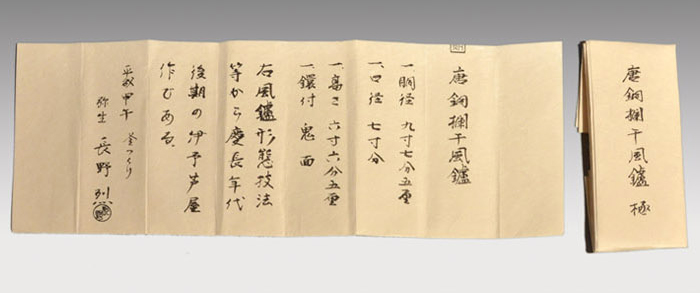 唐銅欄干風鑪
一、胴径 九寸七分五厘
一、口径 七寸分
一、高さ 六寸六分五厘
一、鐶付 鬼面
右風鑪形態技法
等から慶長年代
後期の伊予芦屋
作である
平成甲午 釜つくり
弥生 長野
唐銅欄干風鑪 極